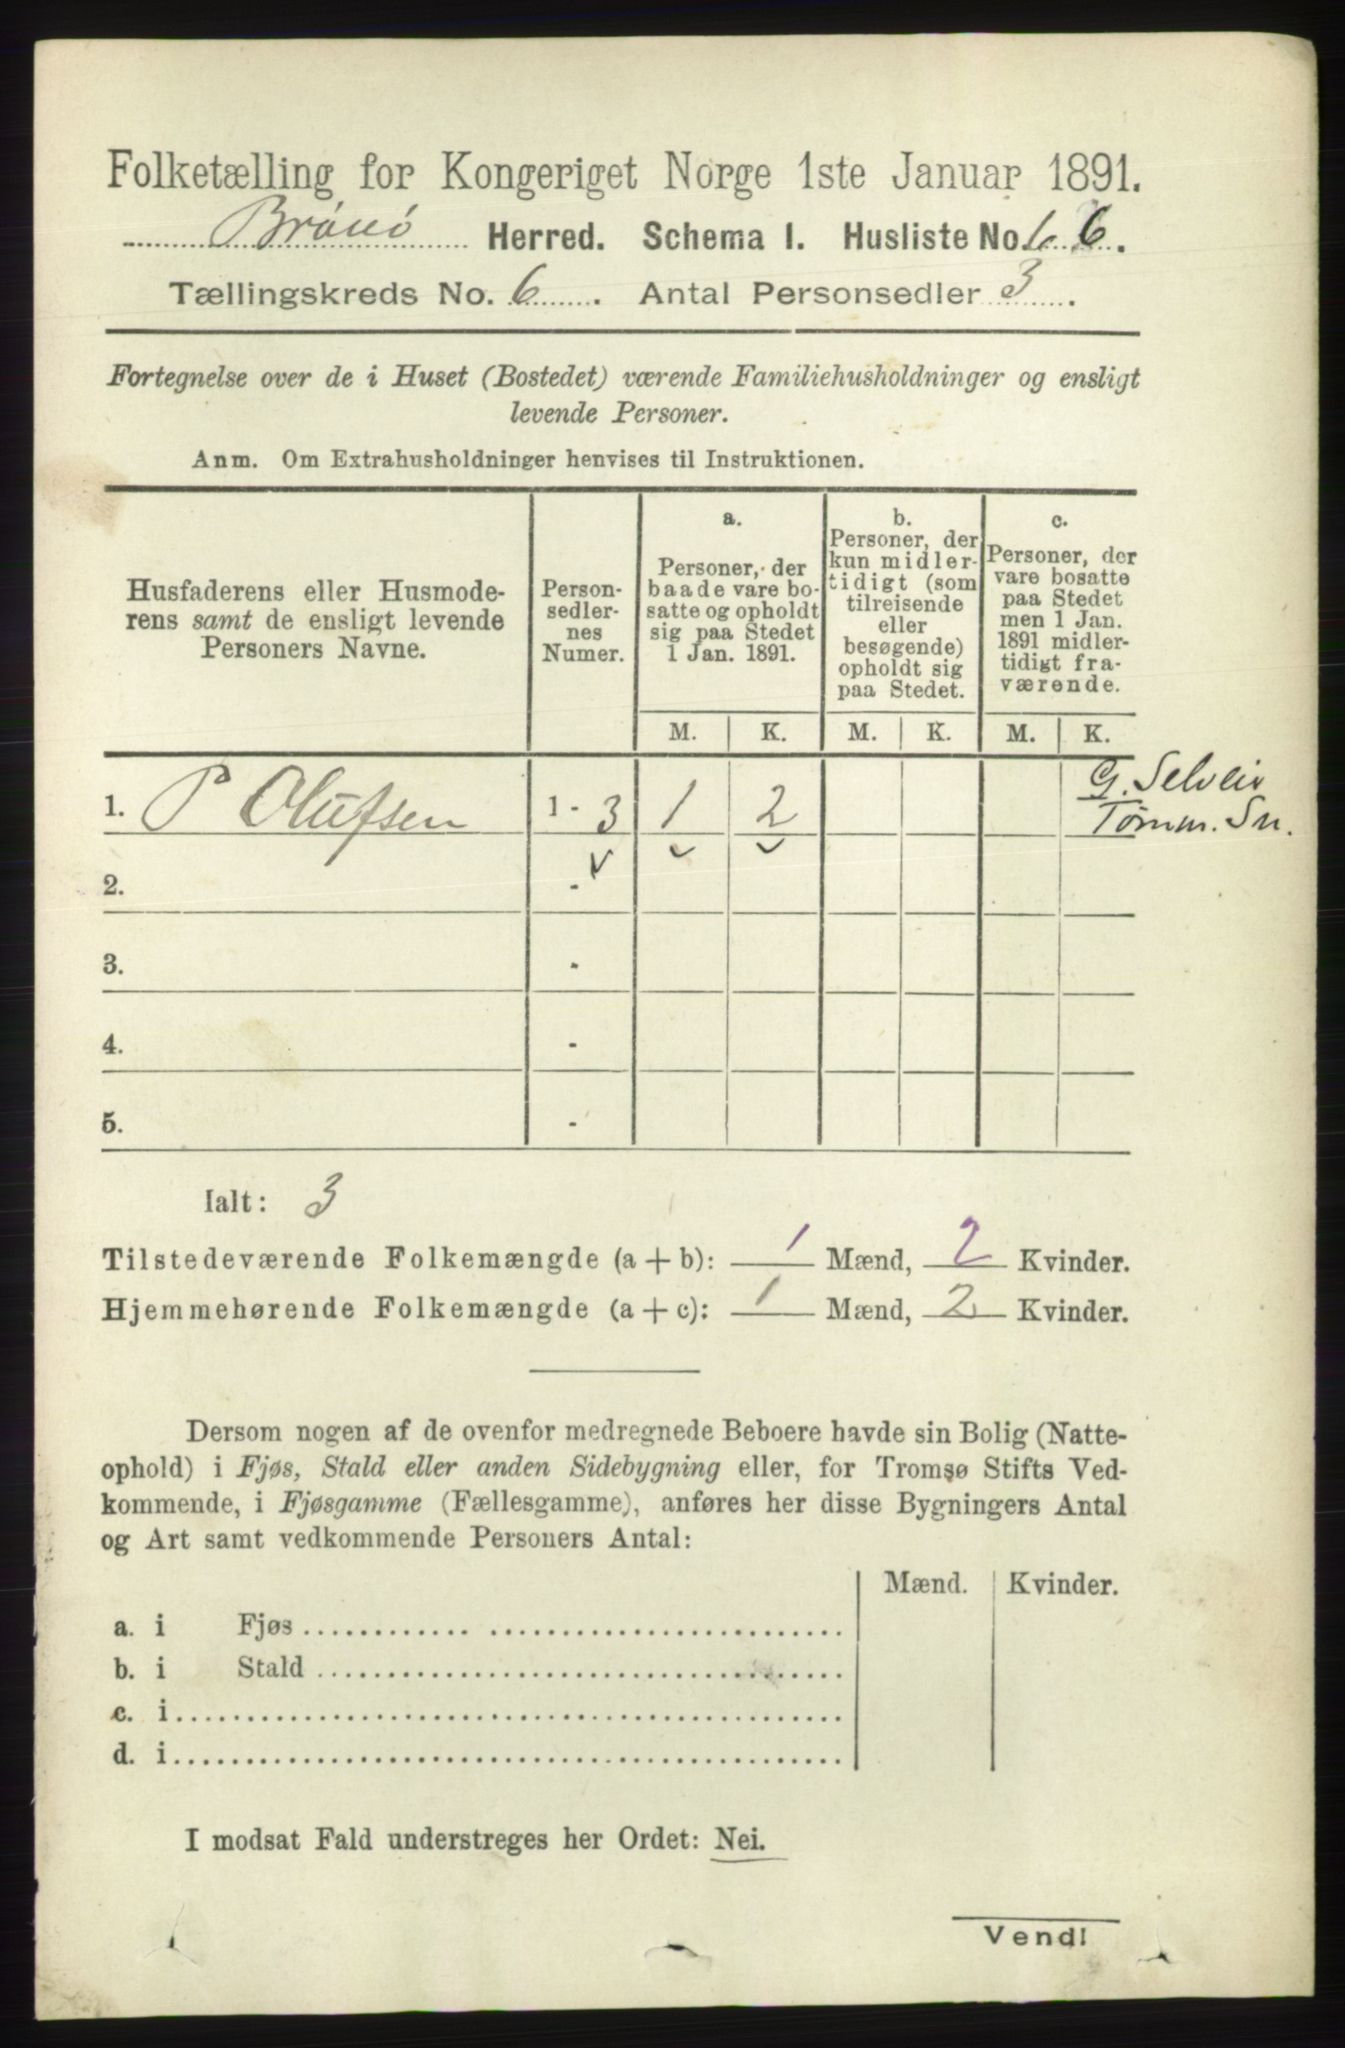 Folketælling for Kongeriget Norge 1ste Januar 1891.
Brönö Herred. Schema I. Husliste No. 6.
Tællingskreds No. 6. Antal Personsedler 3.
Fortegnelse over de i Huset (Bostedet) værende Familiehusholdninger og ensligt
levende Personer.
Anm. Om Extrahusholdninger henvises til Instruktionen.
Husfaderens eller Husmode-
rens samt de ensligt levende
Personers Navne.
Person-
sedler-
nes
Numer.
a.
Personer, der
baade vare bo-
satte og opholdt
sig paa Stedet
1 Jan. 1891.
b.
Personer, der
kun midler-
tidigt (som
tilreisende
eller
besøgende)
opholdt sig
paa Stedet.
c.
Personer, der
vare bosatte
paa Stedet
men 1 Jan.
1891 midler-
tidigt fra-
værende.
M. K. M. K. M. K.
1. P Olufsen 1 - 3 1 2
G. Selveier
Tømm. Sn.
2. -
3. -
4. -
5. -
Ialt: 3
Tilstedeværende Folkemængde (a + b): 1 Mænd, 2 Kvinder.
Hjemmehørende Folkemængde (a + c): 1 Mænd, 2 Kvinder.
Dersom nogen af de ovenfor medregnede Beboere havde sin Bolig (Natte-
ophold) i Fjøs, Stald eller anden Sidebygning eller, for Tromsø Stifts Ved-
kommende, i Fjøsgamme (Fællesgamme), anføres her disse Bygningers Antal
og Art samt vedkommende Personers Antal:
Mænd. Kvinder.
a. i Fjøs
b. i Stald
c. i
d. i
I modsat Fald understreges her Ordet: Nei.
Vend!